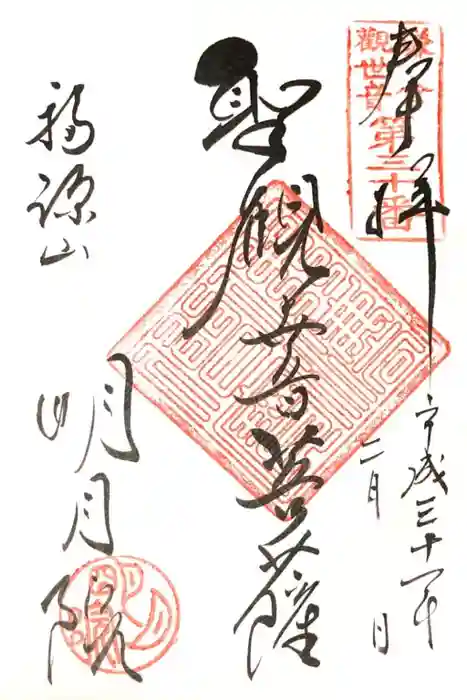 奉拝
鎌倉
觀世音第三十番
平成三十一年
二月 日
聖観世音菩薩
福源山
明月院